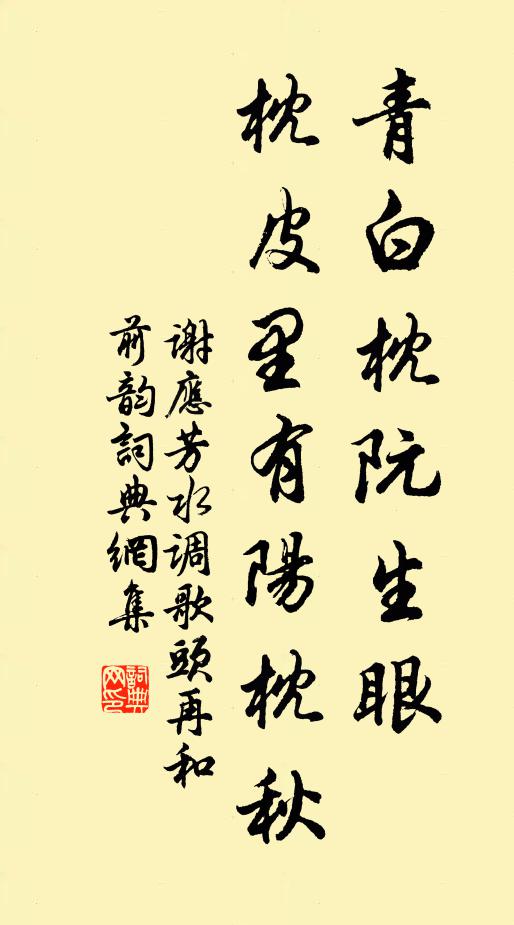 青白枕阮生眼
枕皮里有陽枕秋
谢應芳水调歌頭再和
前韵詞典網集
詞典
网印